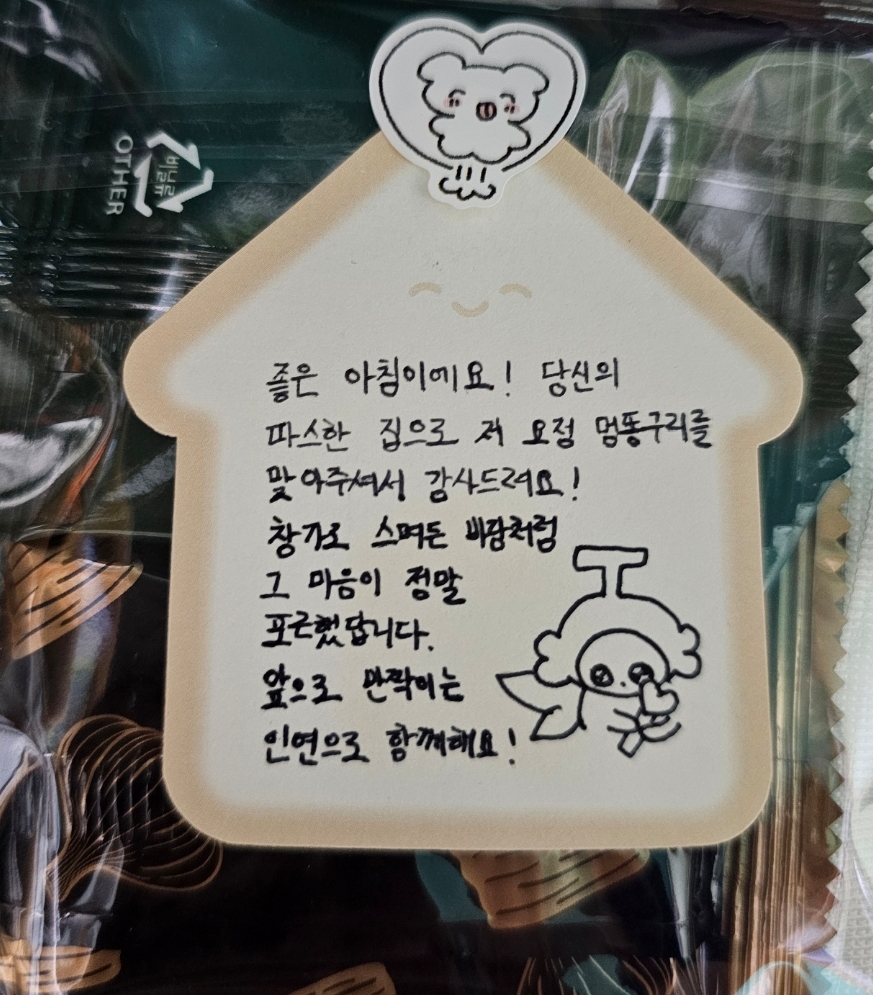 비닐류
OTHER
좋은 아침이에요! 당신의
따스한 집으로 저 요정 멈똥구리를
맞아주셔서 감사드려요!
창가로 스며든 바람처럼
그 마음이 정말
포근했답니다.
앞으로 반짝이는
인연으로 함께해요!